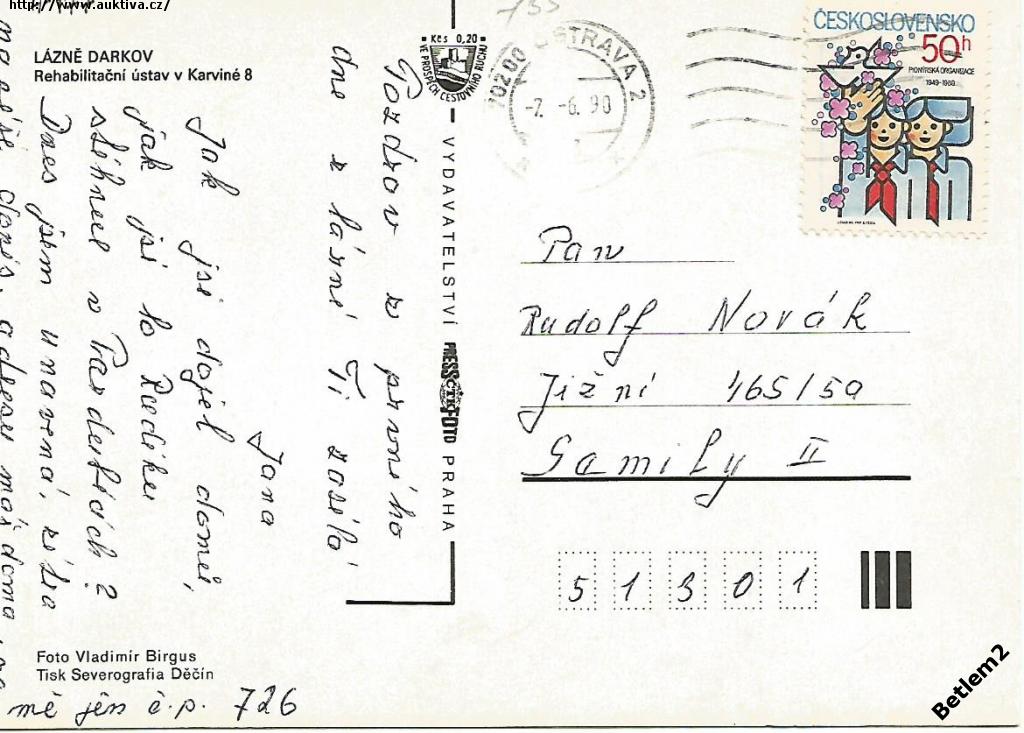 http://www.auktiva.cz/
LÁZNĚ DARKOV
Rehabilitační ústav v Karviné 8
Kčs 0,20
VE PROSPĚCH CESTOVNÍHO RUCHU
70200 OSTRAVA 2
-7. -6. 90
ČESKOSLOVENSKO
50h
PIONÝRSKÁ ORGANIZACE
1949-1989
Pozdrav z prvního
dne z lázní Ti zasílá
Jana
Jak jsi dojel domů,
jak jsi to Radíku
stihnul v Pardubicích?
Dnes jsem unavená, zítra
adresu máš doma
mé jen č.p. 726
VYDAVATELSTVÍ PRESSFOTO PRAHA
ČTK
Pan
Rudolf Novák
Jižní 465/50
Semily II
51301
Foto Vladimír Birgus
Tisk Severografia Děčín
Betlem2